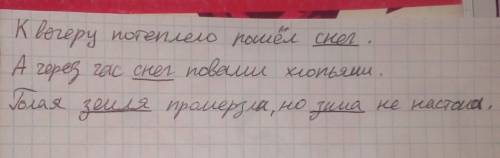 К вечеру потеплело пошёл снег.
А через час снег повалил хлопьями.
Голая земля промерзла, но зима не настала.